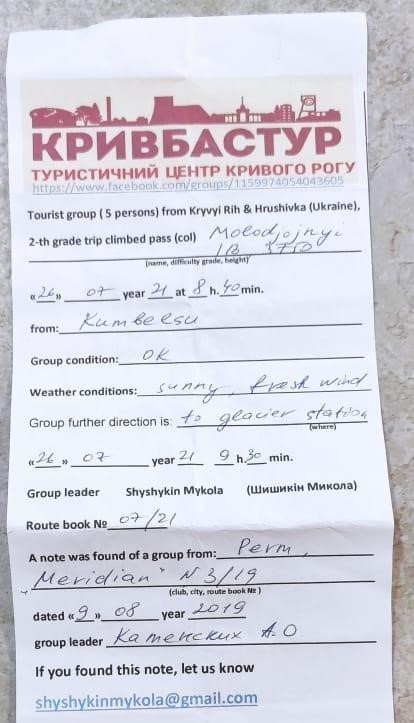 КРИВБАСТУР
ТУРИСТИЧНИЙ ЦЕНТР КРИВОГО РОГУ
https://www.facebook.com/groups/1159974054043605
Tourist group ( 5 persons) from Kryvyi Rih & Hrushivka (Ukraine),
2-th grade trip climbed pass (col) Molodjojnyi
1B 3750
(name, difficulty grade, height)
«26» 07 year 21 at 8 h. 40 min.
from: Kumbelsu
Group condition: OK
Weather conditions: sunny, fresh wind
Group further direction is: to glacier station
(where)
«26» 07 year 21 9 h. 30 min.
Group leader Shyshykin Mykola (Шишикін Микола)
Route book № 07/21
A note was found of a group from: Perm,
"Meridian" N 3/19
(club, city, route book № )
dated «9» 08 year 2019
group leader Каменских А.О
If you found this note, let us know
shyshykinmykola@gmail.com